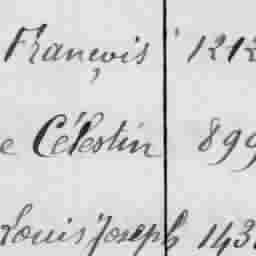 François 1212
e Célestin 899
Louis Joseph 143